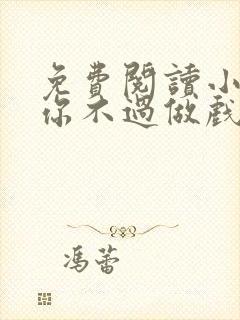 免費閱讀小
你不過做戲
馮蕾